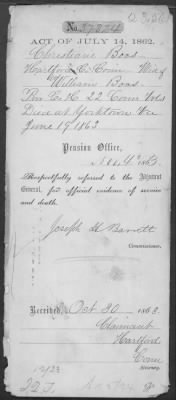 No. 37374
ACT OF JULY 14, 1862.
Christiane Boas
Hartford C. Conn Wid of
William Boas
Pvt C. K 22 Conn Vols
Died at Yorktown Va
June 19 1863
Pension Office,
Nov. 4th 1863.
Respectfully referred to the Adjutant
General, for official evidence of service
and death.
Joseph H Barrett
Commissioner.
Received, Oct 30 1863.
Claimant
Hartford
Conn
Attorney.